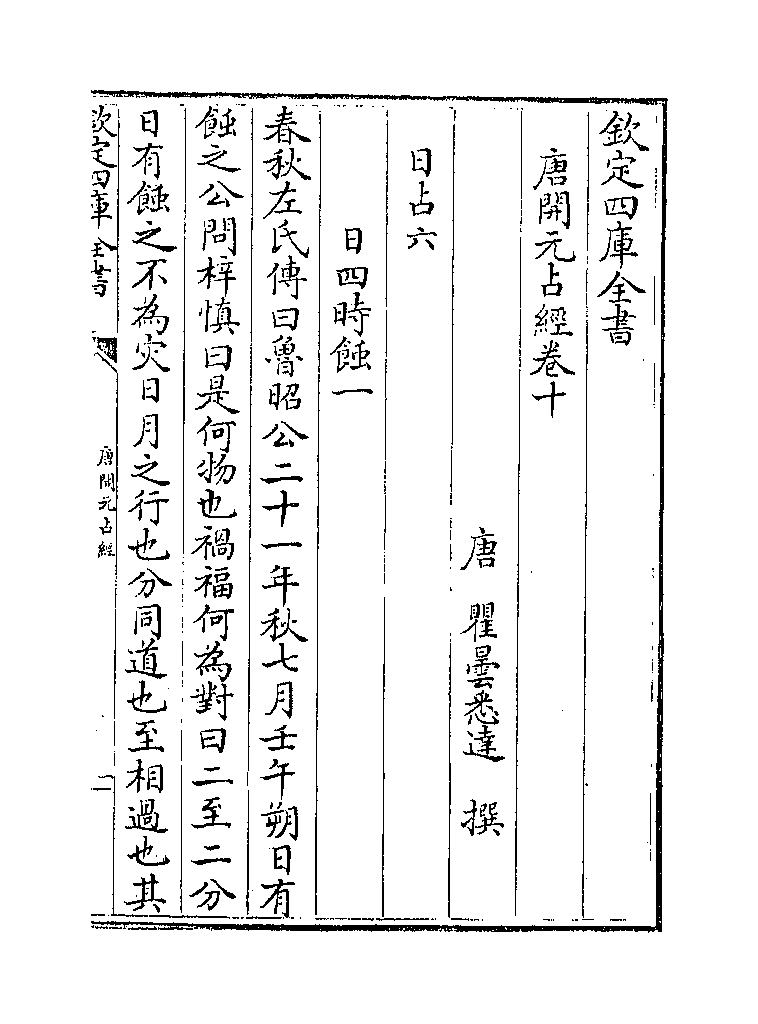 欽定四庫全書
唐開元占經卷十
唐　瞿曇悉達　撰
日占六
日四時蝕一
春秋左氏傳曰魯昭公二十一年秋七月壬午朔日有
蝕之公問梓慎曰是何物也禍福何為對曰二至二分
日有蝕之不為災日月之行也分同道也至相過也其
欽定四庫全書
唐開元占經